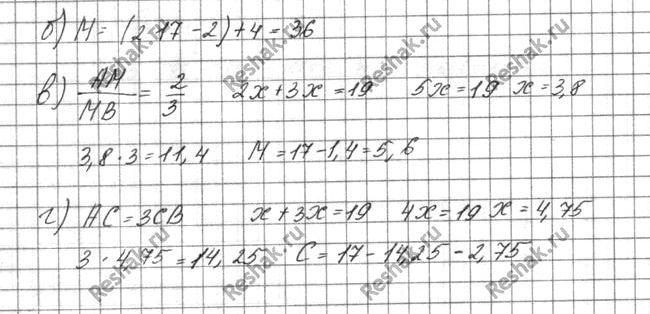 б) М = (2·17 - 2) + 4 = 36
в) АМ/МВ = 2/3 2х + 3х = 19 5х = 19 х = 3,8
3,8 · 3 = 11,4 М = 17 - 1,4 = 5,6
г) АС = 3СВ х + 3х = 19 4х = 19 х = 4,75
3 · 4,75 = 14,25 С = 17 - 14,25 - 2,75
Reshak.ru Reshak.ru Reshak.ru Reshak.ru
Reshak.ru Reshak.ru Reshak.ru Reshak.ru